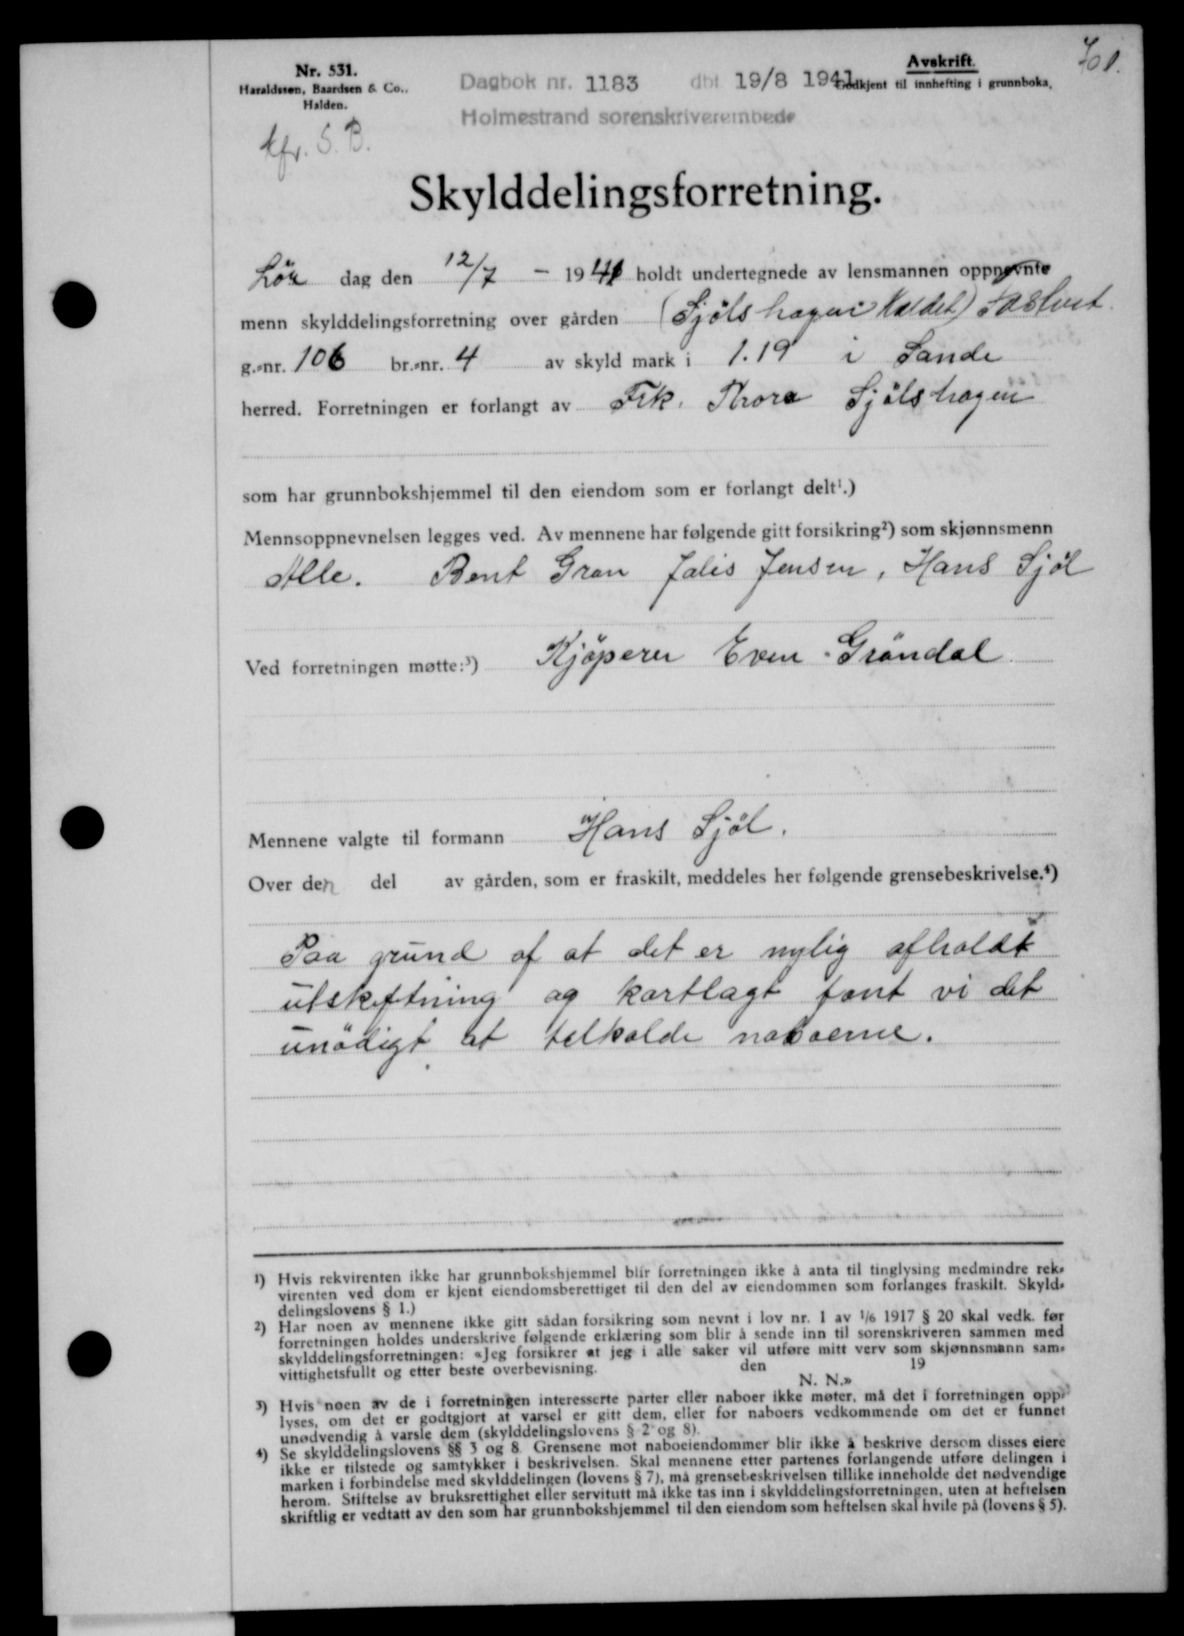 Nr. 531.
Haraldssen, Baardsen & Co.,
Halden.
Dagbok nr. 1183 dbf 19/8 1941
Holmestrand sorenskriverembede
Avskrift.
Godkjent til innhefting i grunnboka.
701.
kfr. S. B.
Skylddelingsforretning.
Lör dag den 12/7 - 1941 holdt undertegnede av lensmannen oppnevnte
menn skylddelingsforretning over gården (Sjölshagen
g.-nr. 106 br.-nr. 4 av skyld mark i 1.19 i Sande
herred. Forretningen er forlangt av Frk. Thora Sjölshagen
som har grunnbokshjemmel til den eiendom som er forlangt delt¹.)
Mennsoppnevnelsen legges ved. Av mennene har følgende gitt forsikring²) som skjønnsmenn
Alle. Bent Gran Julis Jensen, Hans Sjöl
Ved forretningen møtte:³) Kjöperen Even Gröndal
Mennene valgte til formann Hans Sjöl.
Over den del av gården, som er fraskilt, meddeles her følgende grensebeskrivelse.⁴)
Paa grund af at det er nylig afholdt
utskiftning og kartlagt fant vi det
unödigt at tilkalde naboerne.
¹) Hvis rekvirenten ikke har grunnbokshjemmel blir forretningen ikke å anta til tinglysing medmindre rek-
virenten ved dom er kjent eiendomsberettiget til den del av eiendommen som forlanges fraskilt. Skyld-
delingslovens § 1.)
²) Har noen av mennene ikke gitt sådan forsikring som nevnt i lov nr. 1 av 1/6 1917 § 20 skal vedk. før
forretningen holdes underskrive følgende erklæring som blir å sende inn til sorenskriveren sammen med
skylddelingsforretningen: «Jeg forsikrer at jeg i alle saker vil utføre mitt verv som skjønnsmann sam-
vittighetsfullt og etter beste overbevisning. den 19
N. N.»
³) Hvis noen av de i forretningen interesserte parter eller naboer ikke møter, må det i forretningen opp-
lyses, om det er godtgjort at varsel er gitt dem, eller for naboers vedkommende om det er funnet
unødvendig å varsle dem (skylddelingslovens § 2 og 8).
⁴) Se skylddelingslovens §§ 3 og 8. Grensene mot naboeiendommer blir ikke å beskrive dersom disses eiere
ikke er tilstede og samtykker i beskrivelsen. Skal mennene etter partenes forlangende utføre delingen i
marken i forbindelse med skylddelingen (lovens § 7), må grensebeskrivelsen tillike inneholde det nødvendige
herom. Stiftelse av bruksrettighet eller servitutt må ikke tas inn i skylddelingsforretningen, uten at heftelsen
skriftlig er vedtatt av den som har grunnbokshjemmel til den eiendom som heftelsen skal hvile på (lovens § 5).